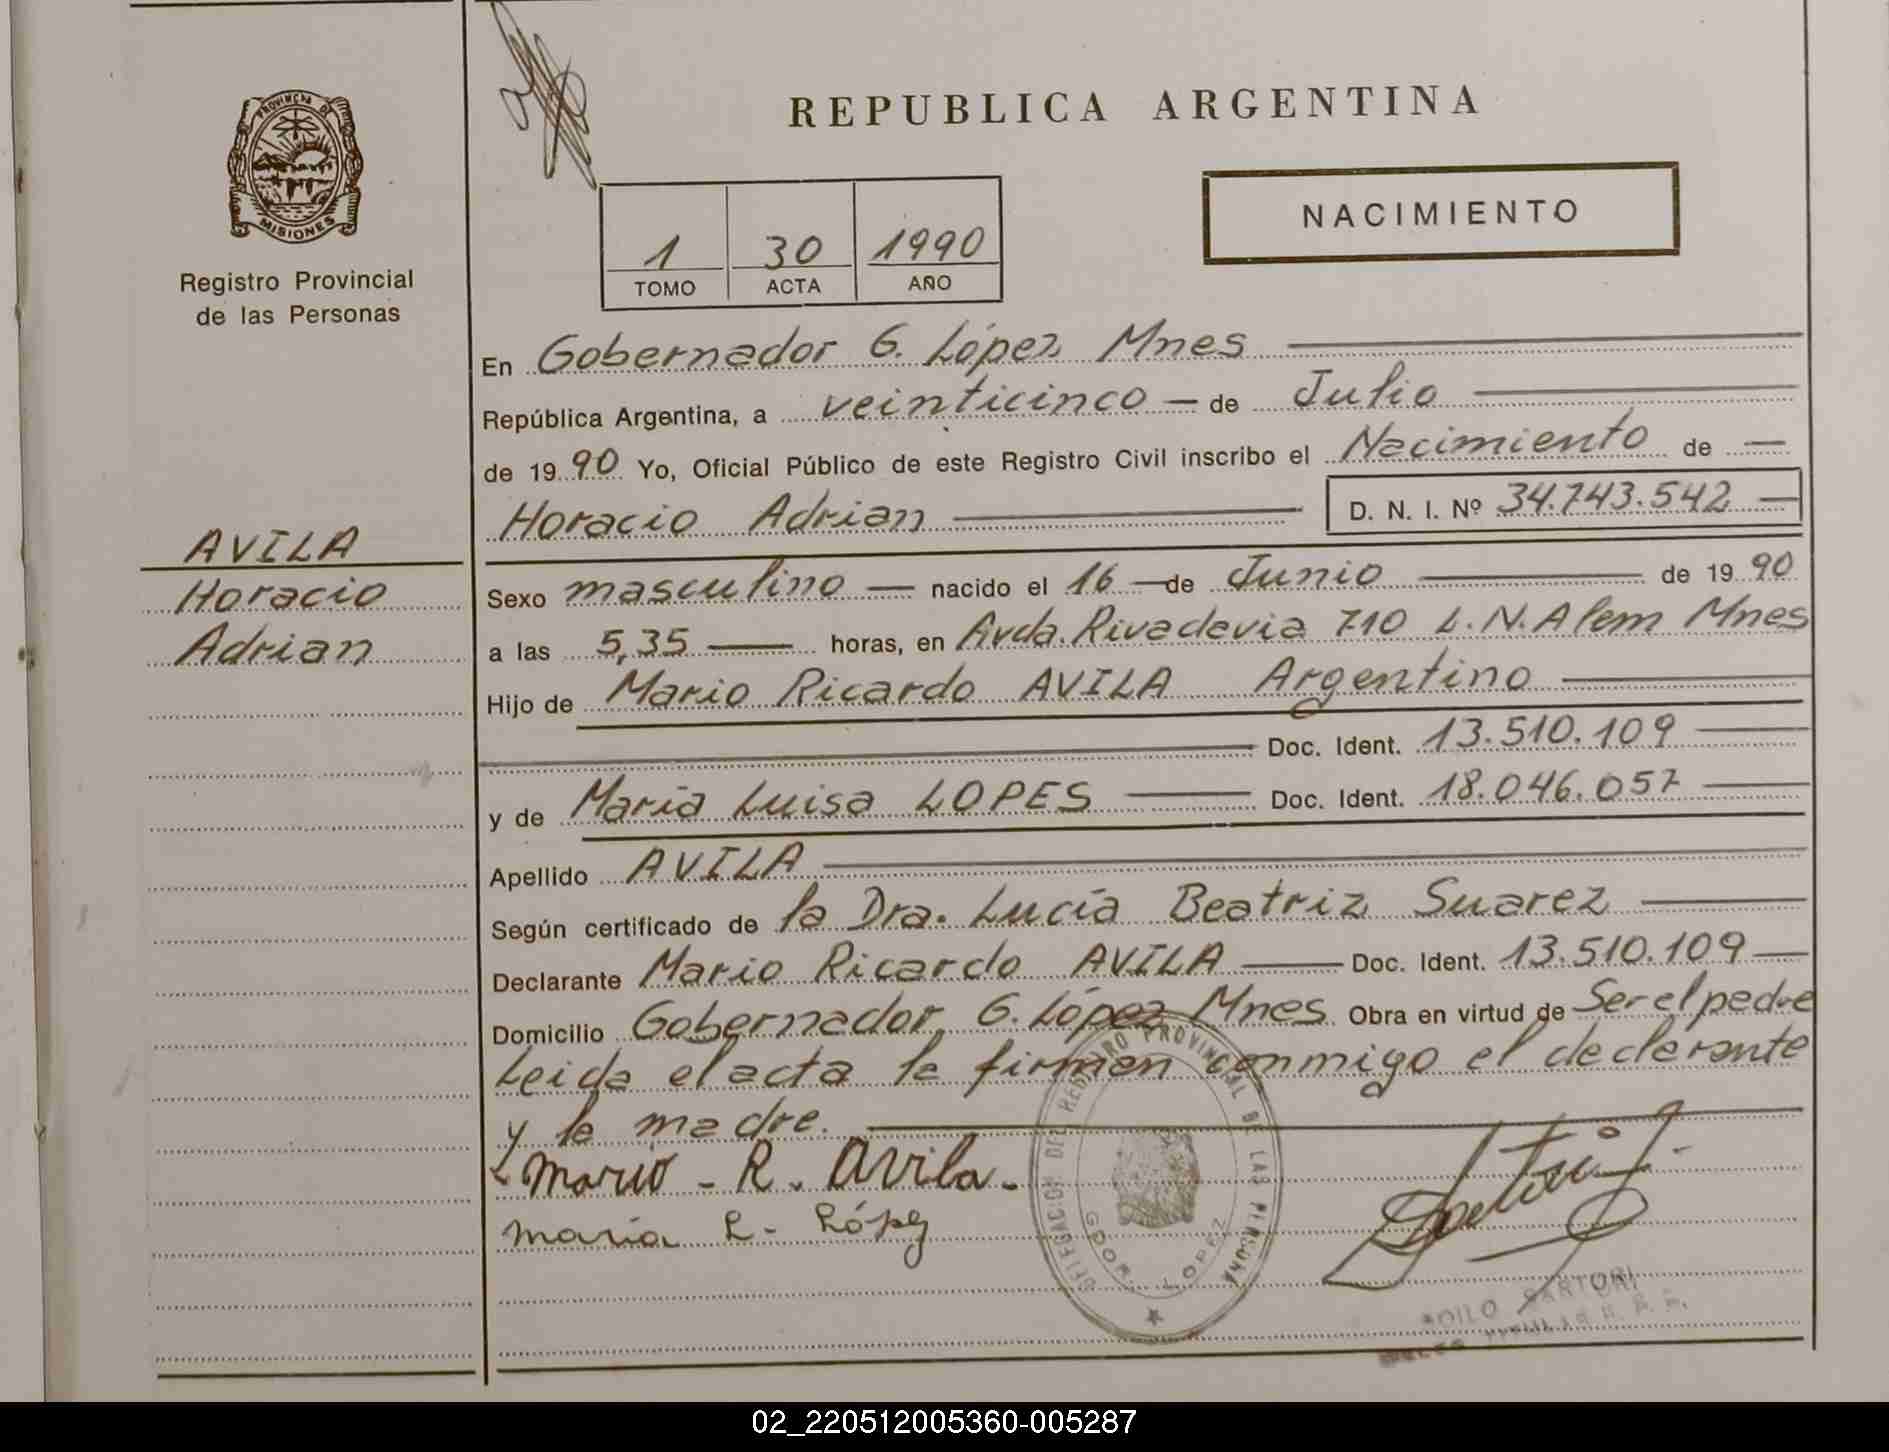 PROVINCIA DE
MISIONES
Registro Provincial
de las Personas
AVILA
Horacio
Adrian
REPUBLICA ARGENTINA
NACIMIENTO
1 30 1990
TOMO ACTA AÑO
En Gobernador G. López Mnes
República Argentina, a veinticinco — de Julio
de 19 90 Yo, Oficial Público de este Registro Civil inscribo el Nacimiento de —
Horacio Adrian D. N. I. Nº 34.743.542 —
Sexo masculino — nacido el 16 — de Junio — de 19 90
a las 5,35 — horas, en Avda. Rivadavia 710 L.N. Alem Mnes
Hijo de Mario Ricardo AVILA Argentino —
Doc. Ident. 13.510.109 —
y de María Luisa LOPES — Doc. Ident. 18.046.057 —
Apellido AVILA —
Según certificado de la Dra. Lucía Beatriz Suarez —
Declarante Mario Ricardo AVILA — Doc. Ident. 13.510.109 —
Domicilio Gobernador G. López Mnes Obra en virtud de Ser el padre
Leida el acta la firman conmigo el declarante
y la madre. —
Mario - R. Avila -
maría L - López
DELEGACION DEL REGISTRO PROVINCIAL DE LAS PERSONAS
GDOR. LOPEZ
SARTORI
02_220512005360-005287